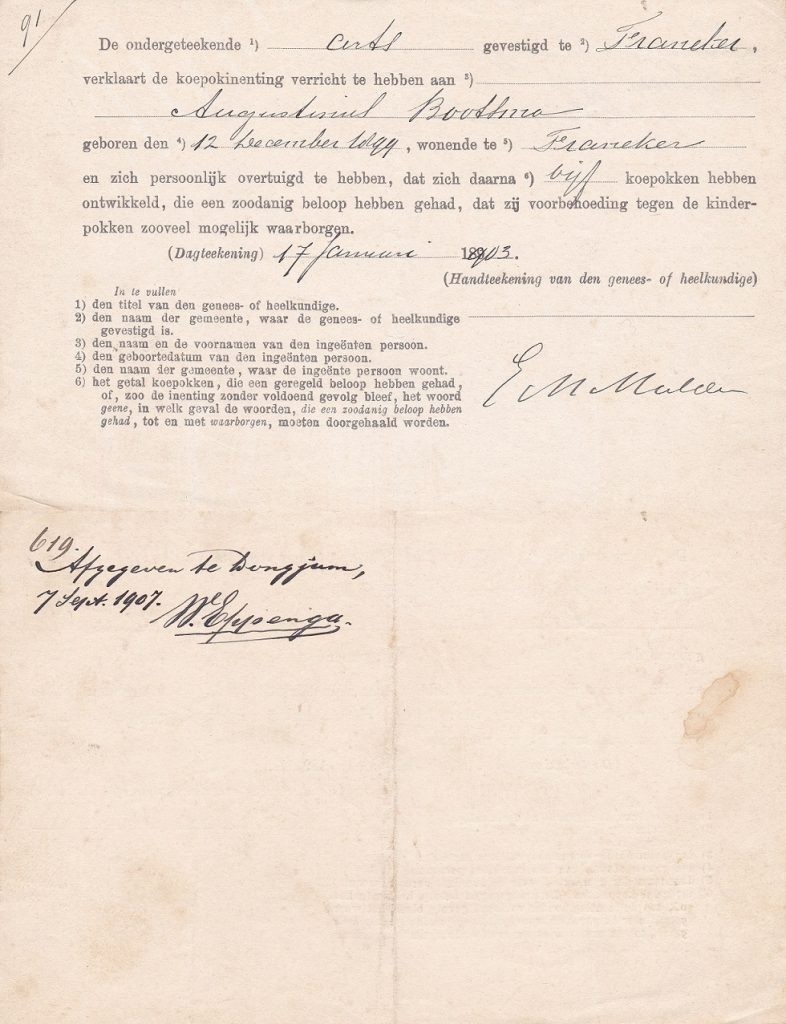 91
De ondergeteekende ¹) arts gevestigd te ²) Franeker,
verklaart de koepokinenting verricht te hebben aan ³)
Augustinus Bootsma
geboren den ⁴) 12 December 1899, wonende te ⁵) Franeker
en zich persoonlijk overtuigd te hebben, dat zich daarna ⁶) vijf koepokken hebben
ontwikkeld, die een zoodanig beloop hebben gehad, dat zij voorbehoeding tegen de kinder-
pokken zooveel mogelijk waarborgen.
(Dagteekening) 17 Januari 1903.
(Handteekening van den genees- of heelkundige)
In te vullen
1) den titel van den genees- of heelkundige.
2) den naam der gemeente, waar de genees- of heelkundige
gevestigd is.
3) den naam en de voornamen van den ingeënten persoon.
4) den geboortedatum van den ingeënten persoon.
5) den naam der gemeente, waar de ingeënte persoon woont.
6) het getal koepokken, die een geregeld beloop hebben gehad,
of, zoo de inenting zonder voldoend gevolg bleef, het woord
geene, in welk geval de woorden, die een zoodanig beloop hebben
gehad, tot en met waarborgen, moeten doorgehaald worden.
E M Mulder
619.
Afgegeven te Dongjum,
7 Sept. 1907. W. Eppenga.